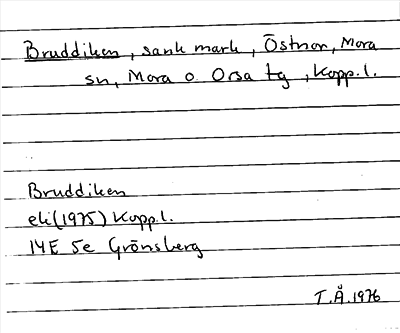 Bruddiken, sank mark, Östnor, Mora
sn, Mora o. Orsa tg, Kopp.l.
Bruddiken
ek(1975) Kopp.l.
14E 5e Grönsberg
T.Å.1976